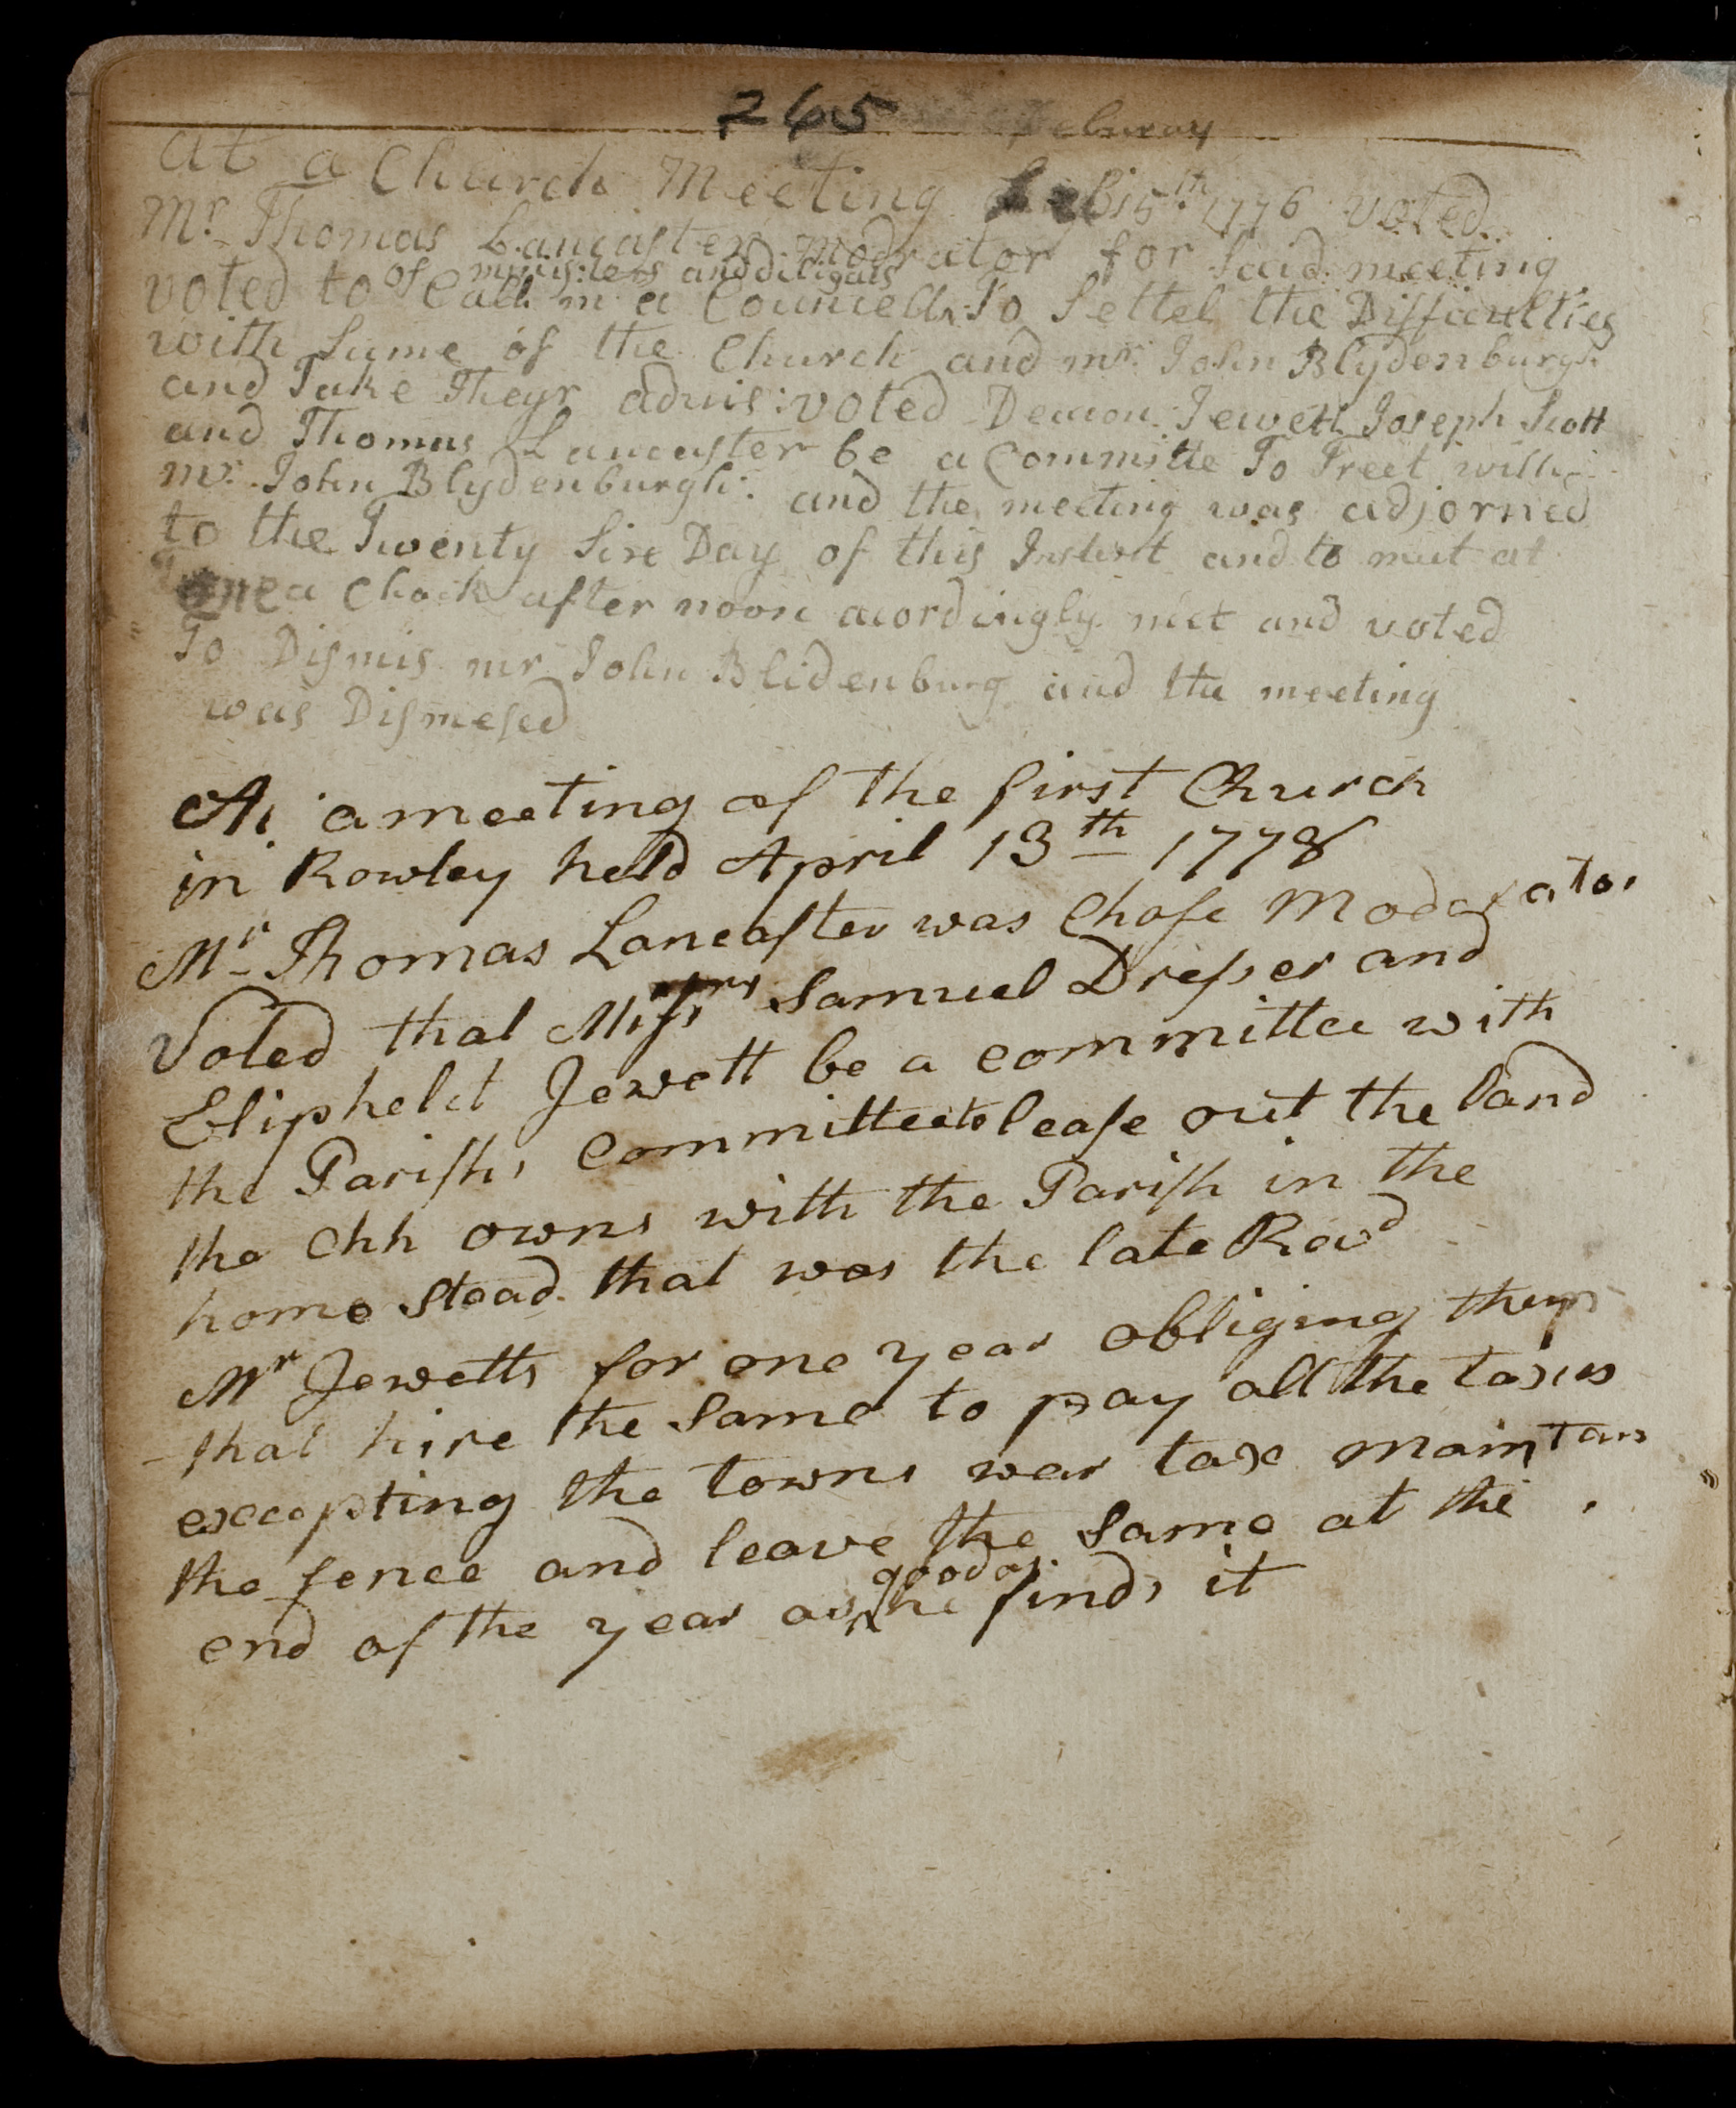 265
Feburay
at a Church Meeting 15th. 1776 voted
Mr. Thomas Lancaster modrator for said meeting
of minis:ters and diligats
voted to Call in a Councell To Settel the Difficulties
with Sume of the Church and mr. John Blydenburgh
and Take Theyr advis: voted Deacon Jewett Joseph Scott
and Thomas Lancaster be a Committe To Treet with
mr. John Blydenburgh: and the meeting was adjorned
to the Twenty Six Day of this Instent and to meet at
one a Clock after noon acordingly met and voted
To Dismis mr John Blidenburg and the meeting
was Dismesed
At a meeting of the first Church
in Rowley held April 13th 1778
Mr Thomas Lancaster was Chose Moderator
Voted that Messrs Samuel Dresser and
Eliphelet Jewett be a committee with
the Parish, committee to lease out the land
the Chh owns with the Parish in the
home Stead that was the late Revd
Mr Jewetts for one year obliging them
that hire the Same to pay all the taxes
excepting the towns war tax maintan
the fence and leave the Same at the
good as
end of the year as he finds it